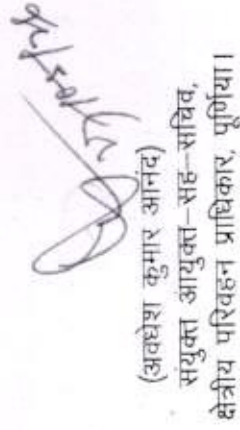 (अवधेश कुमार आनंद)
संयुक्त आयुक्त–सह–सचिव,
क्षेत्रीय परिवहन प्राधिकार, पूर्णिया।